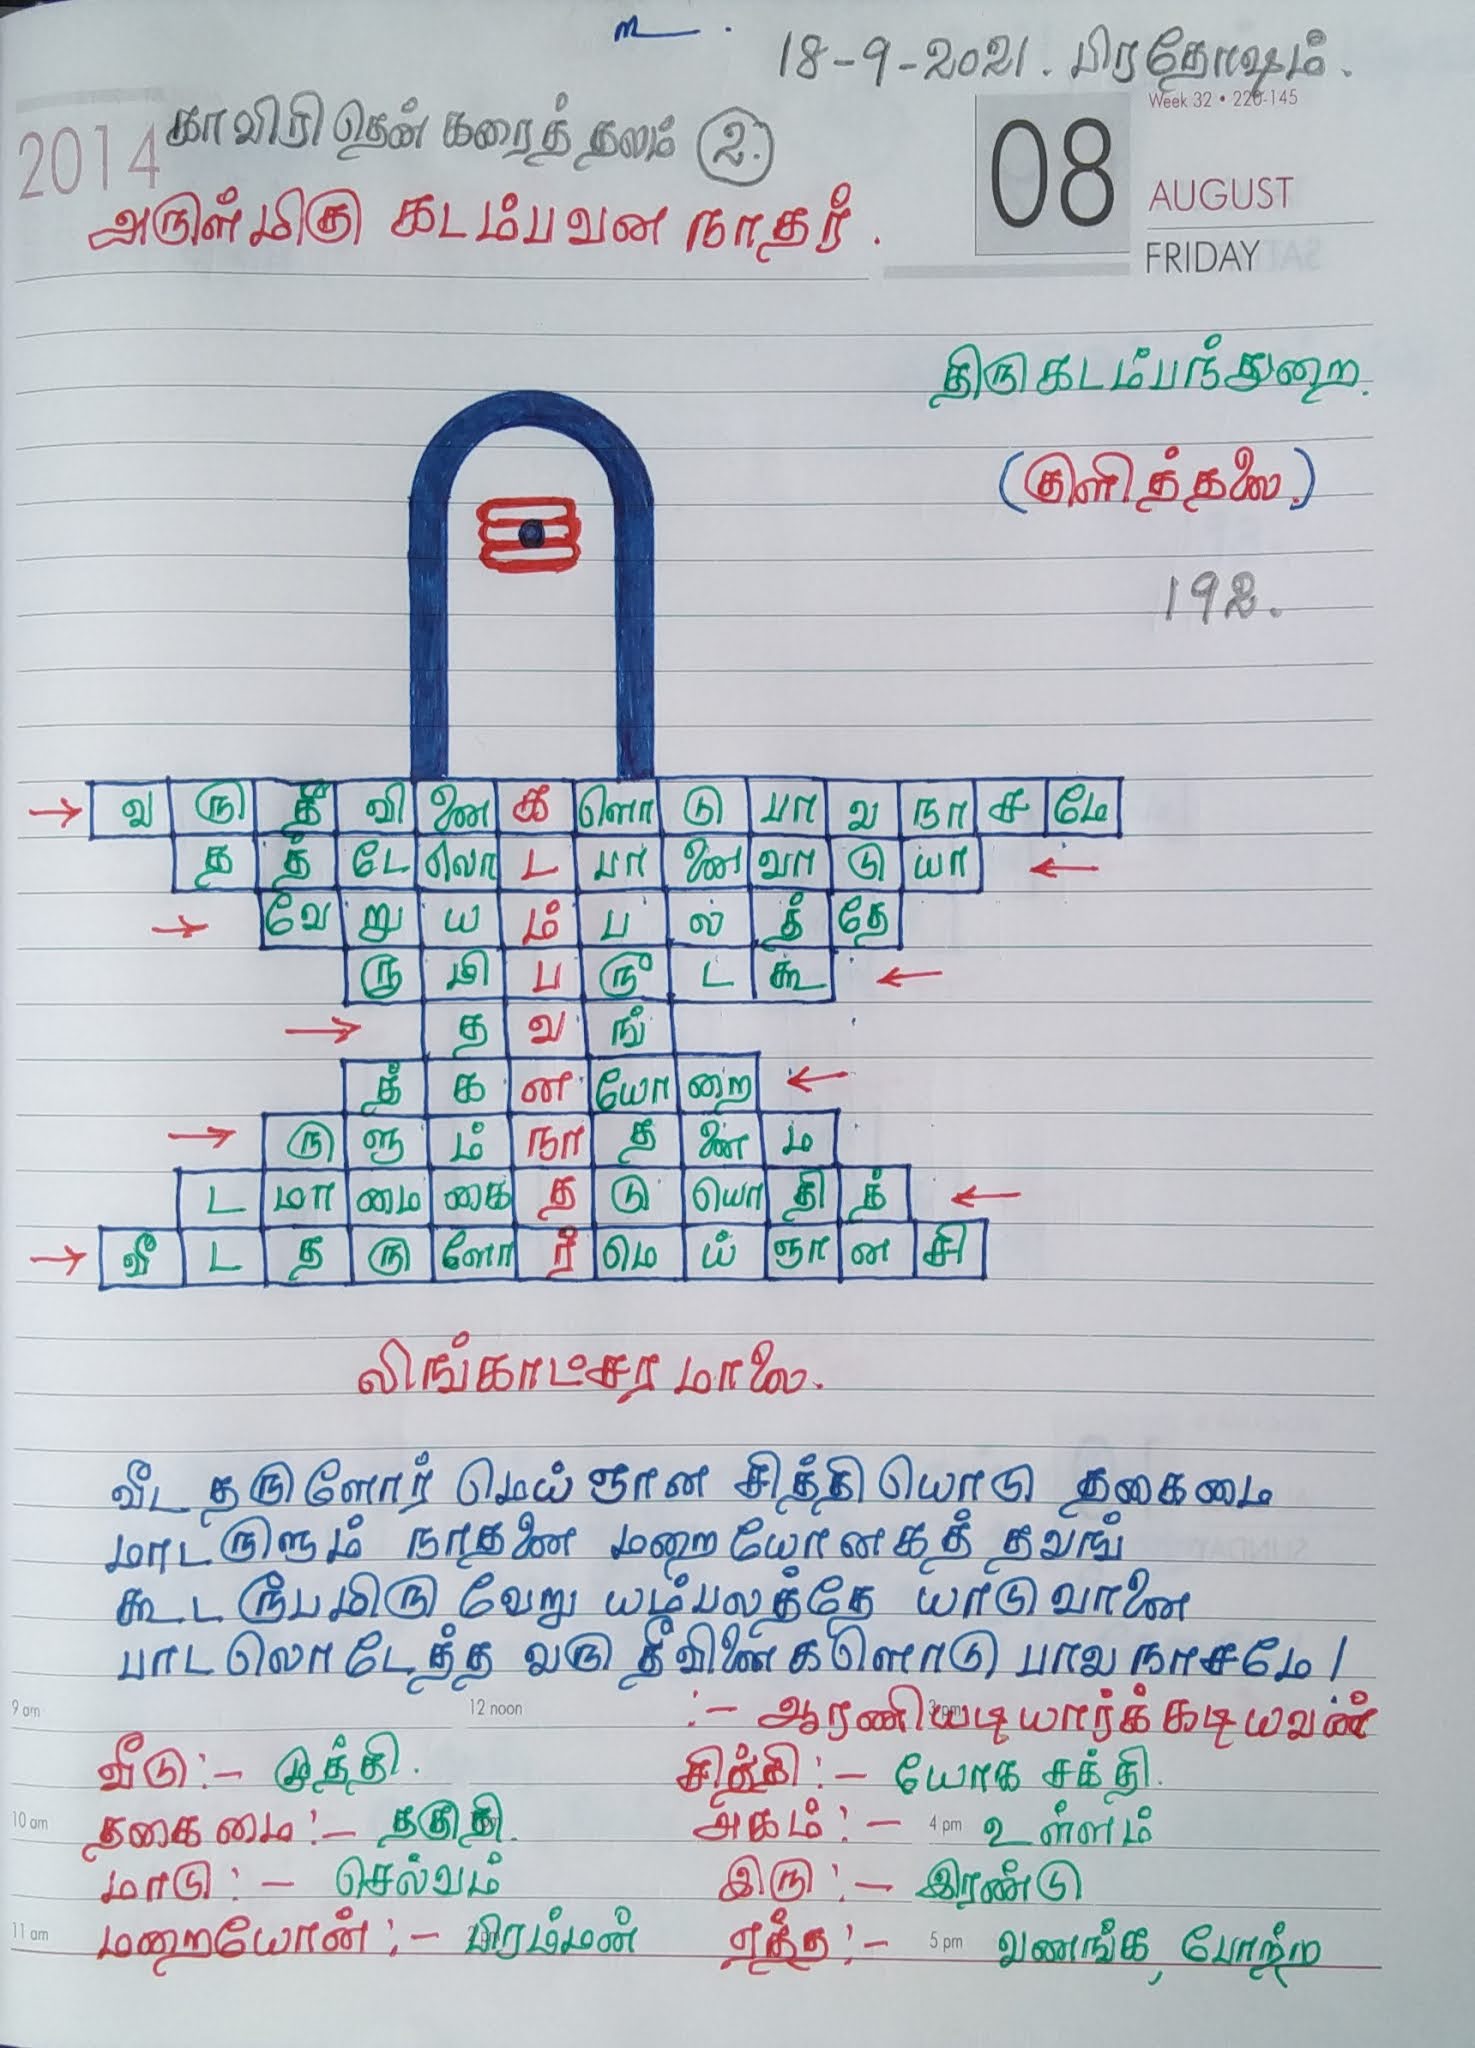 உ
18-9-2021. பிரதோஷம்.
Week 32 • 220-145
2014
காவிரி தென் கரைத் தலம் 2.
08
AUGUST
அருள்மிகு கடம்பவன நாதர்.
FRIDAY
திருகடம்பந்துறை.
(குளித்தலை.)
192.
→ வ ரு தீ வி னை க ளொ டு பா வ நா ச மே
த த் டே லொ ட பா னை வா டு யா ←
→ வே று ய ம் ப ல த் தே
ரு மி ப ரூ ட கூ ←
→ த வ ங்
த் க ன யோ றை ←
→ ரு ளு ம் நா த னை ம
ட மா மை கை த டு யொ தி த் ←
→ வீ ட த ரு ளோ ர் மெ ய் ஞா ன சி
லிங்காட்சர மாலை.
வீட தருளோர் மெய் ஞான சித்தியொடு தகைமை
மாடருளும் நாதனை மறையோனகத் தவங்
கூட ரூபமிரு வேறு யம்பலத்தே யாடுவானை
பாடலொடேத்த வரு தீவினைகளொடு பாவ நாசமே /
9 am
12 noon
3 pm
:- ஆரணியடியார்க்கடியவன்
வீடு:- முத்தி.
சித்தி:- யோக சக்தி.
10 am
தகைமை:- தகுதி.
அகம்:- 4 pm உள்ளம்
மாடு:- செல்வம்
இரு:- இரண்டு
11 am
மறையோன்:- பிரம்மன்
ஏத்த:- 5 pm வணங்க, போற்ற